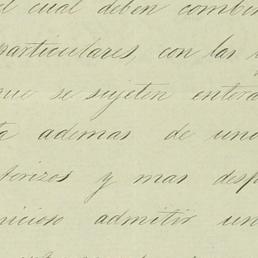 l cual deben combin
particulares, con las
que se sujeten entera
ta ademas de uno
torizos y mas desp
nicioso admitir un